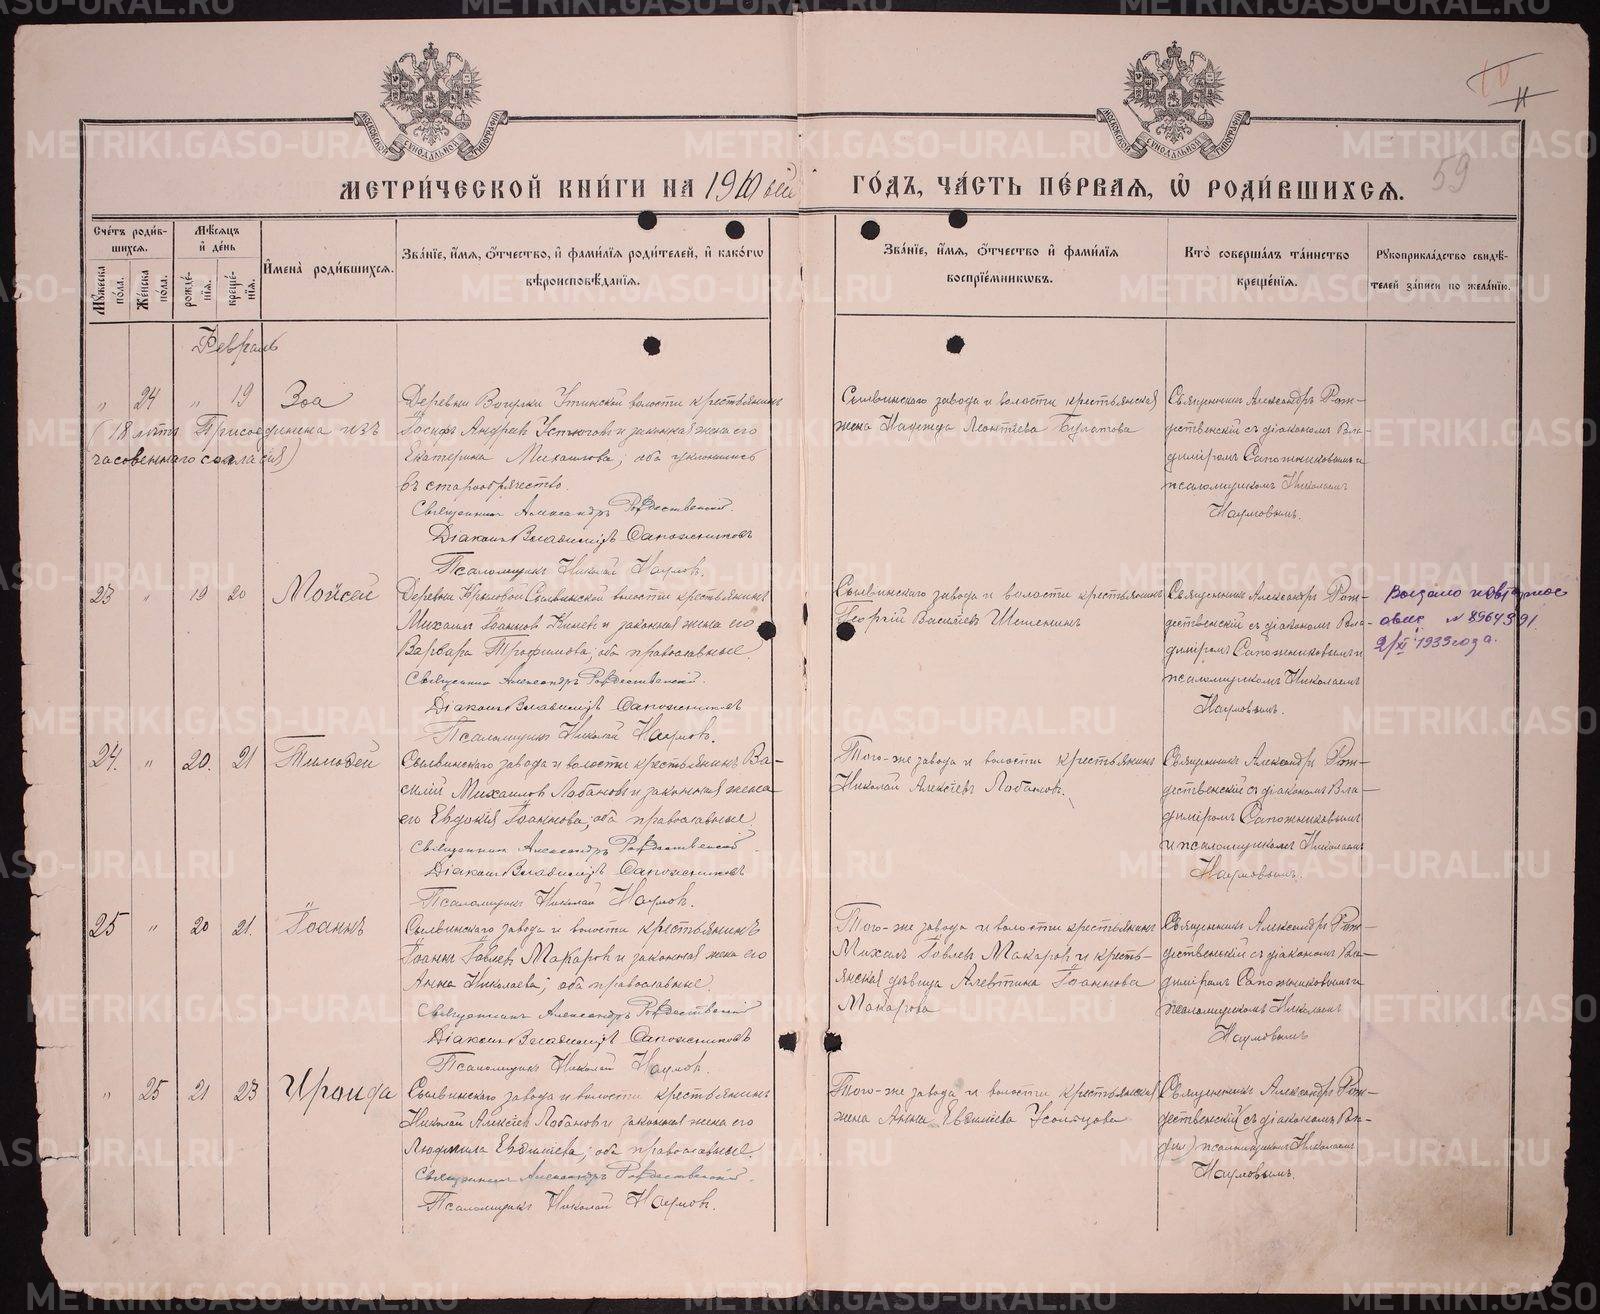 МЕТРИ́ЧЕСКОЙ КНИ́ГИ НА 1910 ый ГО́ДЪ, ЧА́СТЬ ПЕ́РВАѦ, Ѽ РОДИ́ВШИХСѦ.
59
Сче́тъ роди́вшихсѧ.
Мꙋ́жеска по́ла.
Же́нска по́ла.
Мѣ́сяцъ и҆ де́нь
рожде́нїѧ.
креще́нїѧ.
И҆мена̀ роди́вшихсѧ.
Зва́нїе, и҆́мѧ, ѻ҆́тчество, и҆ фами́лїѧ роди́телей, и҆ како́гѡ вѣроисповѣ́данїѧ.
Зва́нїе, и҆́мѧ, ѻ҆́тчество и҆ фами́лїѧ воспрїе́мникѡвъ.
Кто̀ соверша́лъ та́инство креще́нїѧ.
Рꙋкоприкла́дство свидѣ́телей за́писи по жела́нїю.
Февраль
" 24 " 19 Зоа
(18 лѣтъ Присоединена изъ
часовеннаго согласія)
Утинской волости крестьянинъ
Іосифъ Андреевъ Устюговъ и законная жена его
Екатерина Михаилова; оба уклонились
въ старообрядчество
Священникъ Александръ Рождественскій.
Діаконъ Владиміръ Сапожниковъ
Псаломщикъ Николай Наумовъ.
Сылвинскаго завода и волости крестьянская
жена Надежда Леонтіева Булатова
Священникъ Александръ Рож-
дественскій съ діакономъ Вла-
диміромъ Сапожниковымъ и
псаломщикомъ Николаемъ
Наумовымъ.
23 " 19 20 Моѵсей
Деревни Крыловой Сылвинской волости крестьянинъ
Михаилъ Іоанновъ и законная жена его
Варвара Трофимова; оба православные.
Священникъ Александръ Рождественскій.
Діаконъ Владиміръ Сапожниковъ
Псаломщикъ Николай Наумовъ.
Сылвинскаго завода и волости крестьянинъ
Георгій Василіевъ Шешенинъ
Священникъ Александръ Рож-
дественскій съ діакономъ Вла-
диміромъ Сапожниковымъ и
псаломщикомъ Николаемъ
Наумовымъ.
Выдано повторное
№ 8964391
2/XI 1933 года.
24. " 20. 21 Тимоѳей
Сылвинскаго завода и волости крестьянинъ Ва-
силій Михаиловъ Лобановъ и законная жена
его Евдокія Іоаннова; оба православные.
Священникъ Александръ Рождественскій
Діаконъ Владиміръ Сапожниковъ
Псаломщикъ Николай Наумовъ.
Того-же завода и волости крестьянинъ
Николай Алексіевъ Лобановъ.
Священникъ Александръ Рож-
дественскій съ діакономъ Вла-
диміромъ Сапожниковымъ
и псаломщикомъ Николаемъ
Наумовымъ.
25 " 20 21. Іоаннъ
Сылвинскаго завода и волости крестьянинъ
Іоаннъ Іовлевъ Макаровъ и законная жена его
Анна Николаева; оба православные.
Священникъ Александръ Рождественскій
Діаконъ Владиміръ Сапожниковъ
Псаломщикъ Николай Наумовъ.
Того-же завода и волости крестьянинъ
Михаилъ Іовлевъ Макаровъ и кресть-
янская дѣвица Алевтина Іоаннова
Макарова
Священникъ Александръ Рож-
дественскій съ діакономъ Вла-
диміромъ Сапожниковымъ и
псаломщикомъ Николаемъ
Наумовымъ
" 25 21 23 Ираида
Сылвинскаго завода и волости крестьянинъ
Николай Алексіевъ Лобановъ и законная жена его
Людмила Евѳиміева; оба православные.
Священникъ Александръ Рождественскій.
Псаломщикъ Николай Наумовъ.
Того-же завода и волости крестьянская
жена Анна Евѳиміева Усольцева
Священникъ Александръ Рож-
дественскій (съ діакономъ Вла-
дим) псаломщикомъ Николаемъ
Наумовымъ.
METRIKI.GASO-URAL.RU